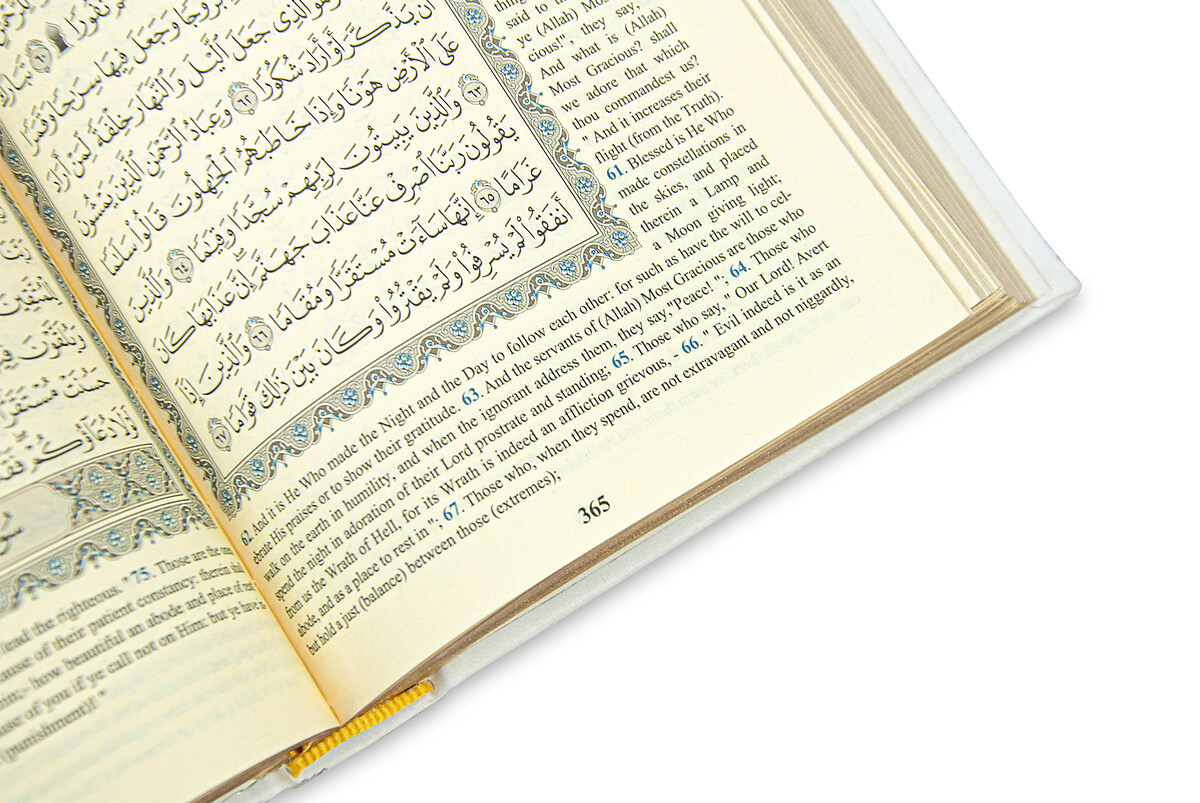 نُفُورًا ۩ ٦٠
بُرُوجًا وَجَعَلَ فِيهَا سِرَٰجًا وَقَمَرًا
هُوَ ٱلَّذِى جَعَلَ ٱلَّيْلَ وَٱلنَّهَارَ خِلْفَةً لِّمَنْ أَرَادَ
أَن يَذَّكَّرَ أَوْ أَرَادَ شُكُورًا ٦٢ وَعِبَادُ ٱلرَّحْمَٰنِ ٱلَّذِينَ يَمْشُونَ
عَلَى ٱلْأَرْضِ هَوْنًا وَإِذَا خَاطَبَهُمُ ٱلْجَٰهِلُونَ قَالُوا۟ سَلَٰمًا
٦٣ وَٱلَّذِينَ يَبِيتُونَ لِرَبِّهِمْ سُجَّدًا وَقِيَٰمًا ٦٤ وَٱلَّذِينَ
يَقُولُونَ رَبَّنَا ٱصْرِفْ عَنَّا عَذَابَ جَهَنَّمَ إِنَّ عَذَابَهَا كَانَ
غَرَامًا ٦٥ إِنَّهَا سَآءَتْ مُسْتَقَرًّا وَمُقَامًا ٦٦ وَٱلَّذِينَ إِذَآ
أَنفَقُوا۟ لَمْ يُسْرِفُوا۟ وَلَمْ يَقْتُرُوا۟ وَكَانَ بَيْنَ ذَٰلِكَ قَوَامًا ٦٧
said to th
ye (Allah) Mos
cious!", they say,
And what is (Allah)
Most Gracious? shall
we adore that which
thou commandest us?
" And it increases their
flight (from the Truth).
61. Blessed is He Who
made constellations in
the skies, and placed
therein a Lamp and
a Moon giving light;
62. And it is He Who made the Night and the Day to follow each other: for such as have the will to cel-
ebrate His praises or to show their gratitude. 63. And the servants of (Allah) Most Gracious are those who
walk on the earth in humility, and when the ignorant address them, they say,"Peace! "; 64. Those who
spend the night in adoration of their Lord prostrate and standing; 65. Those who say, " Our Lord! Avert
from us the Wrath of Hell, for its Wrath is indeed an affliction grievous, - 66. " Evil indeed is it as an
abode, and as a place to rest in "; 67. Those who, when they spend, are not extravagant and not niggardly,
but hold a just (balance) between those (extremes);
365
lead the righteous. " 75. Those are the
ause of their patient constancy: therein
how beautiful an abode and place of
use of you if ye call not on Him: but ye have
(punishment)! "